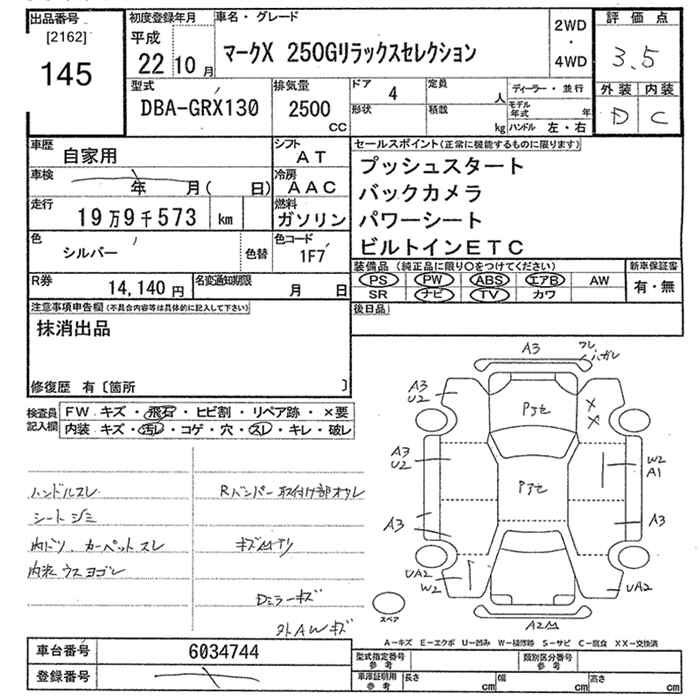 出品番号
[2162]
145
初度登録年月
平成
22年10月
車名・グレード
マークX 250Gリラックスセレクション
2WD
・
4WD
評価点
3.5
外装 内装
D C
型式
DBA-GRX130
排気量
2500
CC
ドア
4
定員
人
形状
積載
kg
ディーラー・並行
モデル年式 年
ハンドル 左・右
車歴
自家用
シフト
AT
車検
年 月( 日)
冷房
AAC
走行
19万9千573 km
燃料
ガソリン
色
シルバー
色替
色コード
1F7
R券
14,140円
名変通知期限
月 日
セールスポイント(正常に機能するものに限ります)
プッシュスタート
バックカメラ
パワーシート
ビルトインETC
装備品 (純正品に限り○をつけてください)
PS PW ABS エアB AW
SR ナビ TV カワ
新車保証書
有・無
後日品
注意事項申告欄(不具合内容等は具体的に記入して下さい)
抹消出品
修復歴 有〔箇所 〕
検査員記入欄
FW キズ・飛石・ヒビ割・リペア跡・×要
内装 キズ・汚レ・コゲ・穴・スレ・キレ・破レ
ハンドルスレ
シート ジミ
内ドツ、カーペットスレ
内装ウスヨゴレ
Rバンパー取付け部オワレ
Dミラーキズ
外AWキズ
A3
ハガレ
A3
U2
Pﾌﾋ
××
A3
U2
Pﾌﾋ
W2
A1
A3
A3
UA2
W2
UA2
A2
スペア
A−キズ E−エクボ U−凹み W−補修跡 S−サビ C−腐食 XX−交換済
車台番号
6034744
登録番号
型式指定番号
参考
類別区分番号
参考
車庫証明用
参考
長さ cm 幅 cm 高さ cm